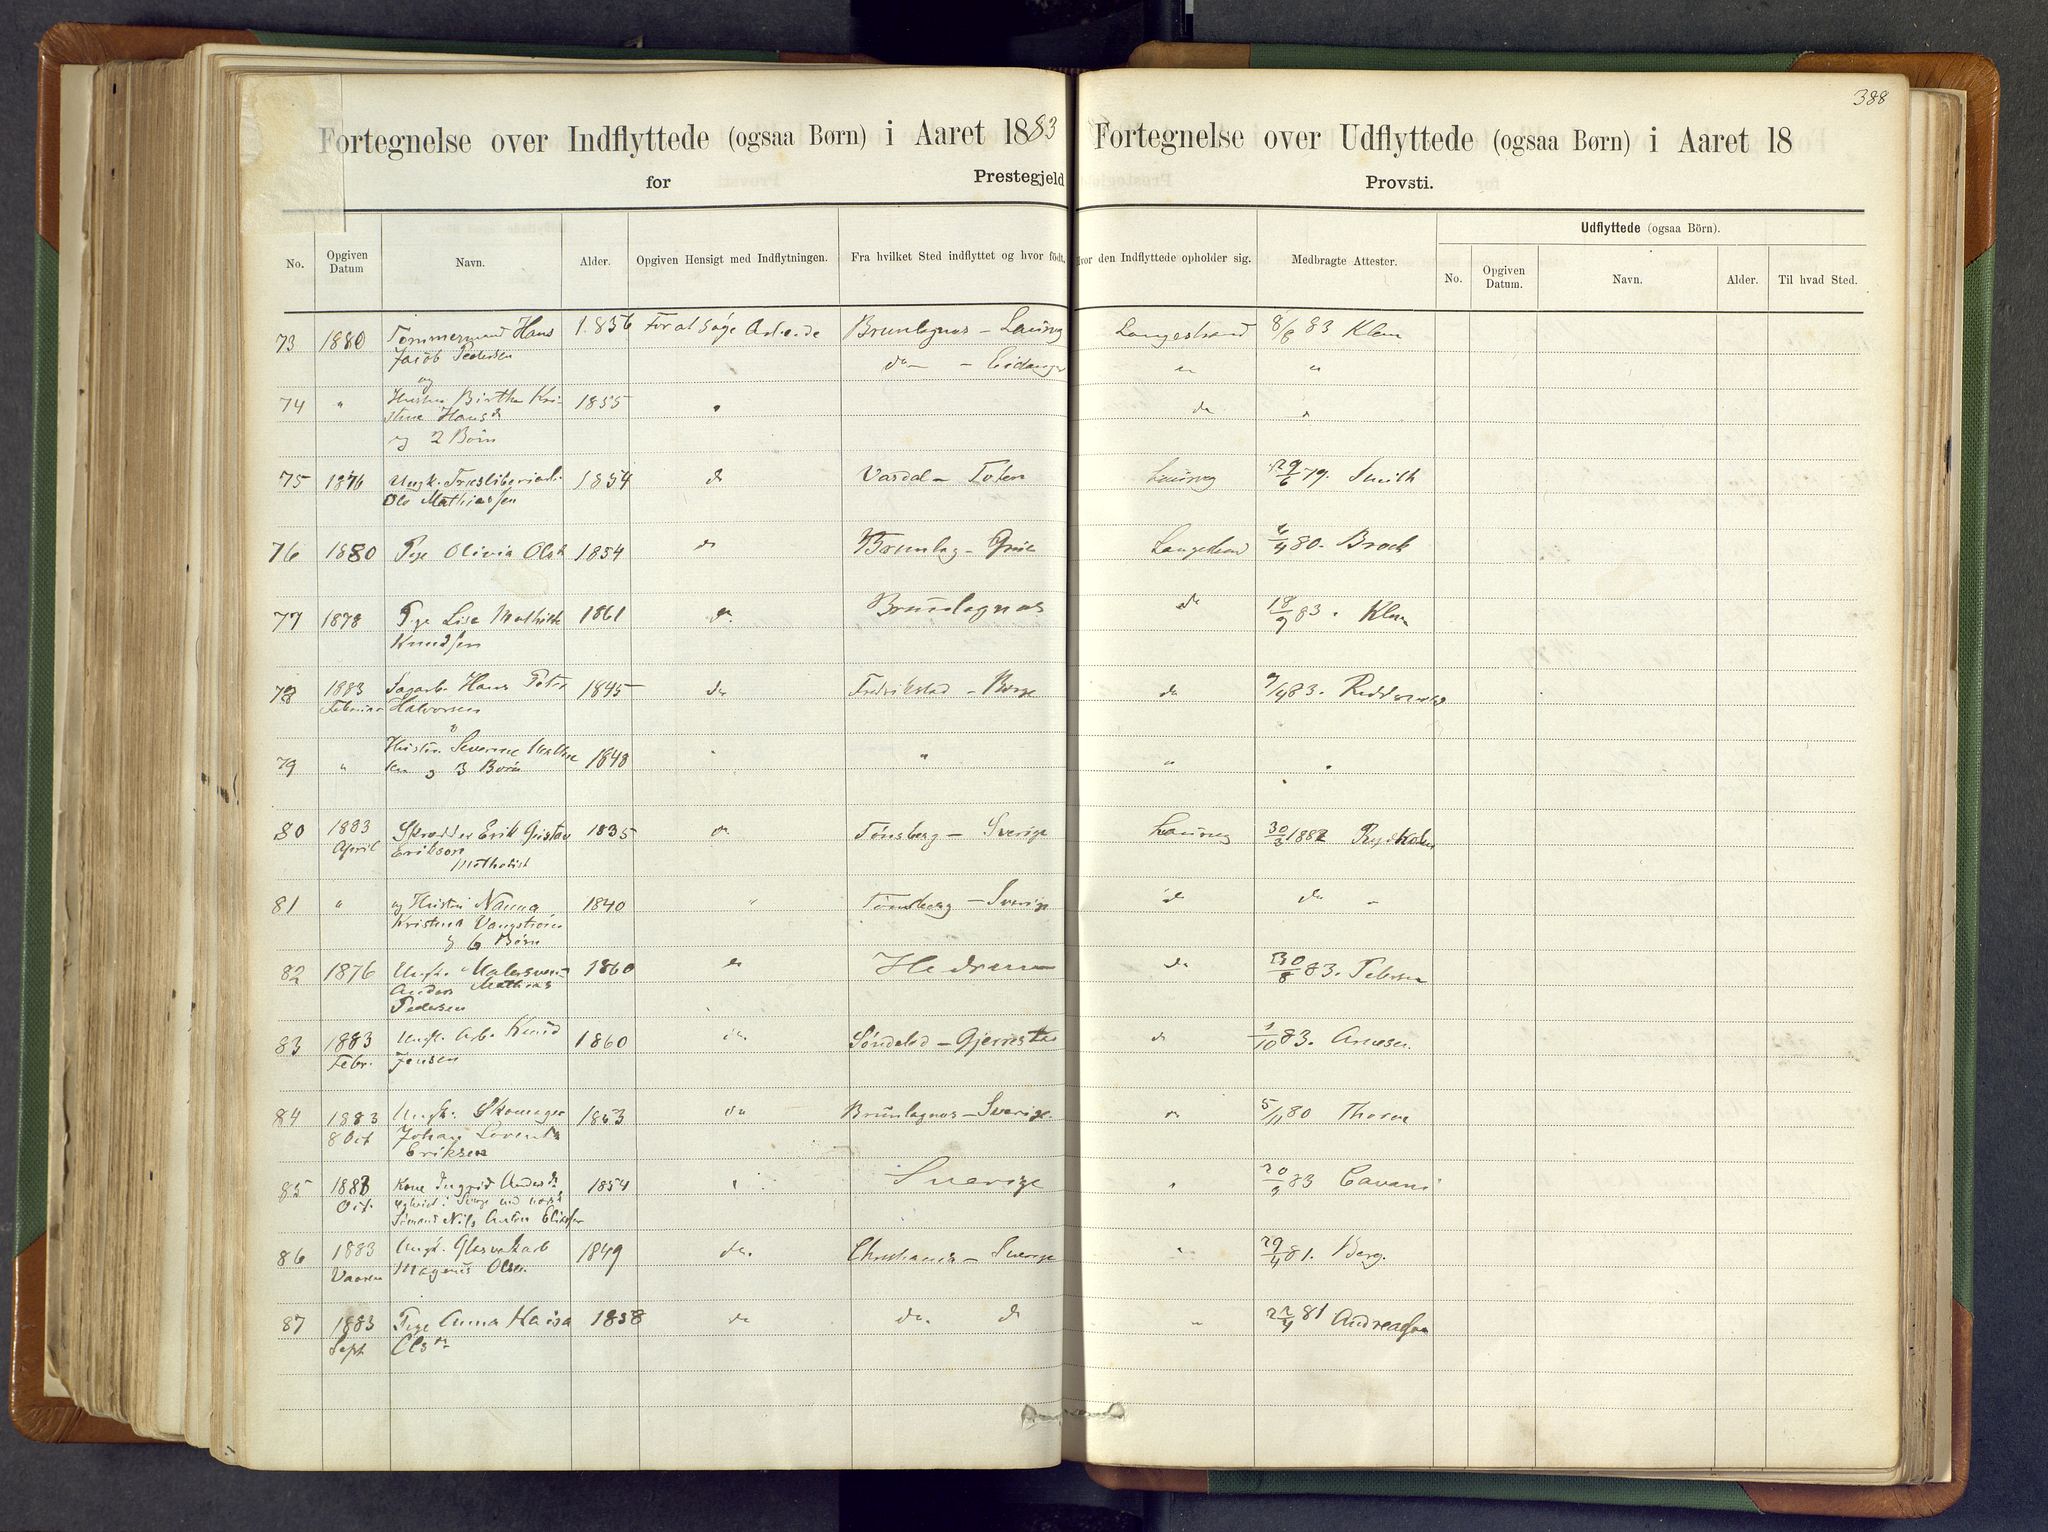 388
Fortegnelse over Indflyttede (ogsaa Børn) i Aaret 1883
for Prestegjeld
Fortegnelse over Udflyttede (ogsaa Børn) i Aaret 18
Provsti.
No. Opgiven Datum Navn. Alder. Opgiven Hensigt med Indflytningen. Fra hvilket Sted indflyttet og hvor født. Hvor den Indflyttede opholder sig. Medbragte Attester.
Udflyttede (ogsaa Börn).
No. Opgiven Datum. Navn. Alder. Til hvad Sted.
73 1880 Tømmermand Hans 1856 For at søge Arbeide Brunlagnæs – Laurvig Langestrand 8/8 83 Klem
Jacob Pedersen do – – Eidanger " "
og
74 " Hustru Birthe Kri 1855 " do "
stine Hansd
og 2 Børn
75 1876 Ungk. Træsliberiarb. 1854 do Vardal – Toten Laurvig 29/6 79. Smith
Ole Mathiassen
76 1880 Pige Olivia Olsd 1854 do Brunlag – Langestrand 6/4 80. Brock
77 1878 Pige Lise Mathilde 1861 do. Brunlagnæs do 18/9 83. Klem
Knudsen
78 1883 Sagarb. Hans Peter 1845 do Fredrikstad – Borge do 9/4 83.
Februar Halvorsen
og
79 " Hustru Severine 1848 " " " "
og 3 Børn
80 1883 Skrædder Erik Gustav 1835 do Tønsberg – Sverige Laurvig 30/3 1882
April Erikson
Methodist
81 " og Hustru Nanna 1840 " Tønsberg – Sverige do do –
Kristina Vangström
og 6 Børn
82 1876 Ungk. Malersvend 1860 do Hedrum do 30/8 83. Petersen
Anders Mathias
Pedersen
83 1883 Ungk. Arb. Knud 1860 do Søndeled – Gjerrestad do 1/10 83. Arnesen.
Febr. Jensen
84 1883 Ungk. Skomager 1863 do Brunlagnæs – Sverige. do 5/11 80
8 Oct Johan
Eriksen
85 1883 Kone Ingrid Andersd 1854 " Sverige " 20/9 83 Cavani
Oct. i Sverige med
Sømand Nils Anton
86 1883 Ungk. Glasværkarb 1849 do. Christiania – Sverige " 29/4 81. Berg.
Vaaren Magnus Olsen
87 1883 Pige Anna Kaisa 1858 do do. do " 22/4 81 Andreassen
Sept Olsdr